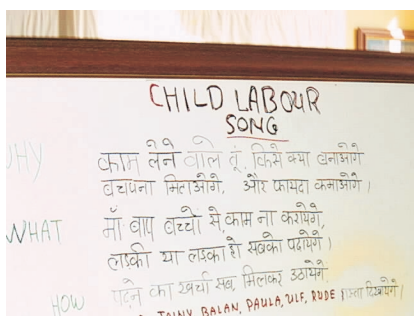 CHILD LABOUR
SONG
WHY
काम लेने वाले तूं, किसे क्या बनाओगे
बचपना मिटाओगे, और फायदा कमाओगे।
WHAT
माँ बाप बच्चो से, काम ना करायेंगे,
लड़की या लड़का हो सबको पढायेंगे।
HOW
पढ़ने का खर्चा सब, मिलकर उठायेंगे
BALAN, PAULA, ULF, RUDE रास्ता दिखायेंगे।